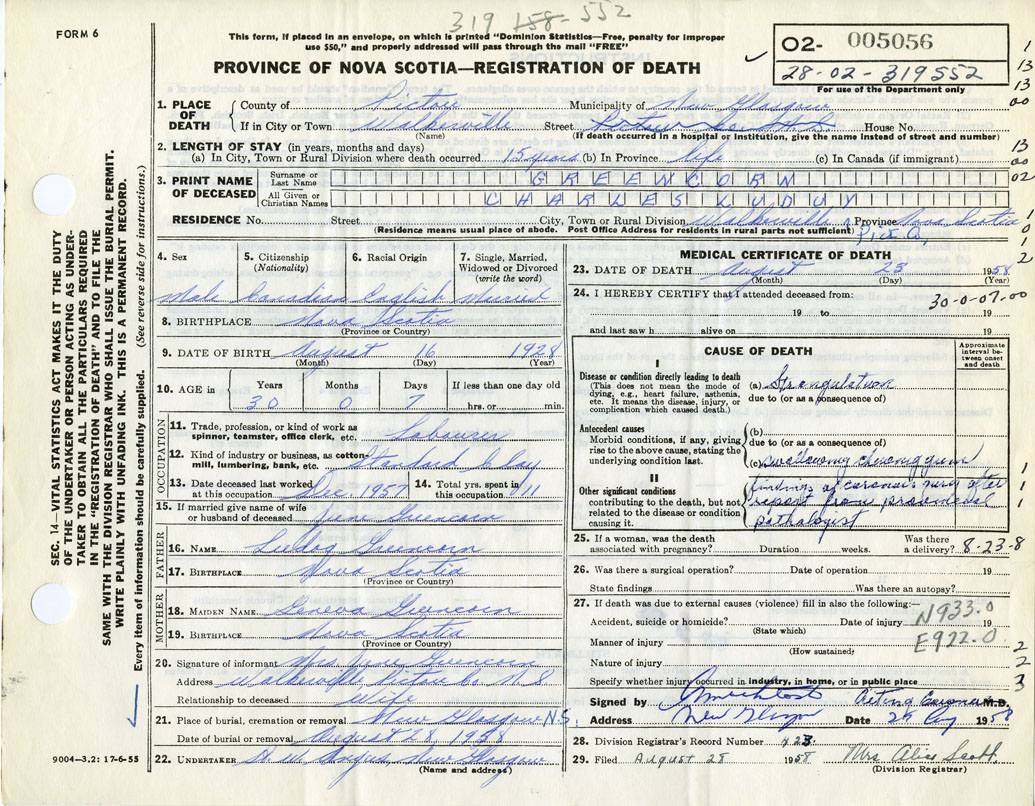 319 158-552
FORM 6
This form, if placed in an envelope, on which is printed "Dominion Statistics—Free, penalty for improper
use $50," and properly addressed will pass through the mail "FREE"
PROVINCE OF NOVA SCOTIA—REGISTRATION OF DEATH
02- 005056
28-02-319552
For use of the Department only
1. PLACE OF DEATH County of Pictou Municipality of New Glasgow
If in City or Town Walkerville Street House No.
(Name) (If death occurred in a hospital or institution, give the name instead of street and number)
2. LENGTH OF STAY (in years, months and days)
(a) In City, Town or Rural Division where death occurred 15 years (b) In Province life (c) In Canada (if immigrant)
3. PRINT NAME OF DECEASED
Surname or Last Name GREENCORN
All Given or Christian Names CHARLES LUDUY
RESIDENCE No. Street City, Town or Rural Division Walkerville Province Nova Scotia
(Residence means usual place of abode. Post Office Address for residents in rural parts not sufficient) Pict Co,
4. Sex 5. Citizenship (Nationality) 6. Racial Origin 7. Single, Married, Widowed or Divorced (write the word)
Male Canadian English Married
8. BIRTHPLACE Nova Scotia
(Province or Country)
9. DATE OF BIRTH August 16 1928
(Month) (Day) (Year)
10. AGE in Years Months Days If less than one day old
30 0 7 hrs. or min.
11. Trade, profession, or kind of work as spinner, teamster, office clerk, etc. Labourer
12. Kind of industry or business, as cotton-mill, lumbering, bank, etc. Standard Clay
13. Date deceased last worked at this occupation Dec. 1957 14. Total yrs. spent in this occupation 11
15. If married give name of wife or husband of deceased June Greencorn
FATHER
16. NAME Greencorn
17. BIRTHPLACE Nova Scotia
(Province or Country)
MOTHER
18. MAIDEN NAME Geneva Greencorn
19. BIRTHPLACE Nova Scotia
(Province or Country)
20. Signature of informant Mrs June Greencorn
Address Walkerville, Pictou Co N.S
Relationship to deceased Wife
21. Place of burial, cremation or removal New Glasgow N.S.
Date of burial or removal August 28, 1958
22. UNDERTAKER New Glasgow
(Name and address)
9004—3.2: 17-6-55
MEDICAL CERTIFICATE OF DEATH
23. DATE OF DEATH August 23 1958
(Month) (Day) (Year)
24. I HEREBY CERTIFY that I attended deceased from: 30-0-07.00
19 to 19
and last saw h alive on 19
CAUSE OF DEATH
Approximate interval between onset and death
I
Disease or condition directly leading to death
(This does not mean the mode of dying, e.g., heart failure, asthenia, etc. It means the disease, injury, or complication which caused death.)
(a) Strangulation
due to (or as a consequence of)
Antecedent causes
Morbid conditions, if any, giving rise to the above cause, stating the underlying condition last.
(b)
due to (or as a consequence of)
(c) swallowing chewing gum
II
Other significant conditions
contributing to the death, but not related to the disease or condition causing it.
findings of coroner's jury after
report from provincial
pathologist
25. If a woman, was the death associated with pregnancy? Duration weeks. Was there a delivery? 8-23-8
26. Was there a surgical operation? Date of operation 19
State findings Was there an autopsy?
27. If death was due to external causes (violence) fill in also the following:
Accident, suicide or homicide? Date of injury 19
(State which) N933.0
Manner of injury E922.0
(How sustained)
Nature of injury
Specify whether injury occurred in industry, in home, or in public place
Signed by Acting Coroner M.D.
Address New Glasgow Date 29 Aug 1958
28. Division Registrar's Record Number 423
29. Filed August 28 1958 Mrs Alice Scott
(Division Registrar)
SEC. 14—VITAL STATISTICS ACT MAKES IT THE DUTY
OF THE UNDERTAKER OR PERSON ACTING AS UNDER-
TAKER TO OBTAIN ALL THE PARTICULARS REQUIRED
IN THE "REGISTRATION OF DEATH" AND TO FILE THE
SAME WITH THE DIVISION REGISTRAR WHO SHALL ISSUE THE BURIAL PERMIT.
WRITE PLAINLY WITH UNFADING INK. THIS IS A PERMANENT RECORD.
Every item of information should be carefully supplied. (See reverse side for instructions.)
1
13
13
00
13
00
02
1
0
1
2
1
1
1
2
2
3